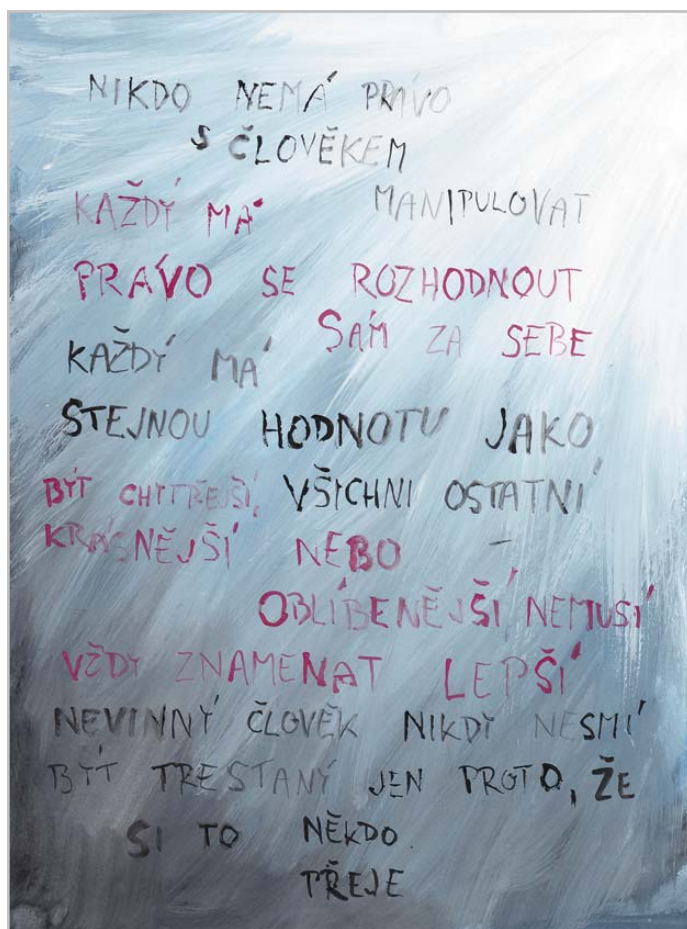 NIKDO NEMÁ PRÁVO
S ČLOVĚKEM
MANIPULOVAT
KAŽDÝ MÁ
PRÁVO SE ROZHODNOUT
SÁM ZA SEBE
KAŽDÝ MÁ
STEJNOU HODNOTU JAKO
VŠICHNI OSTATNÍ
BÝT CHYTŘEJŠÍ,
KRÁSNĚJŠÍ NEBO -
OBLÍBENĚJŠÍ NEMUSÍ
VŽDY ZNAMENAT LEPŠÍ
NEVINNÝ ČLOVĚK NIKDY NESMÍ
BÝT TRESTANÝ JEN PROTO, ŽE
SI TO NĚKDO
PŘEJE